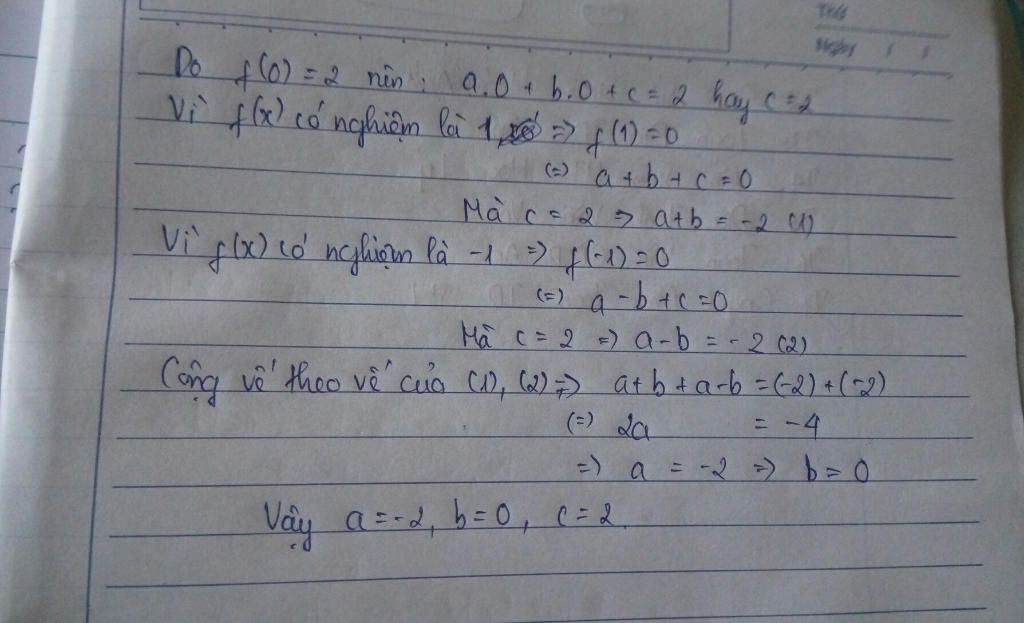 Thứ
Ngày
Do f(0) = 2 nên : a.0 + b.0 + c = 2 hay c = 2
Vì f(x) có nghiệm là 1 => f(1) = 0
(=) a + b + c = 0
Mà c = 2 => a+b = -2 (1)
Vì f(x) có nghiệm là -1 => f(-1) = 0
(=) a - b + c = 0
Mà c = 2 => a-b = -2 (2)
Cộng vế theo vế của (1), (2) => a+b+a-b = (-2)+(-2)
(=) 2a = -4
=> a = -2 => b = 0
Vậy a = -2, b = 0, c = 2.